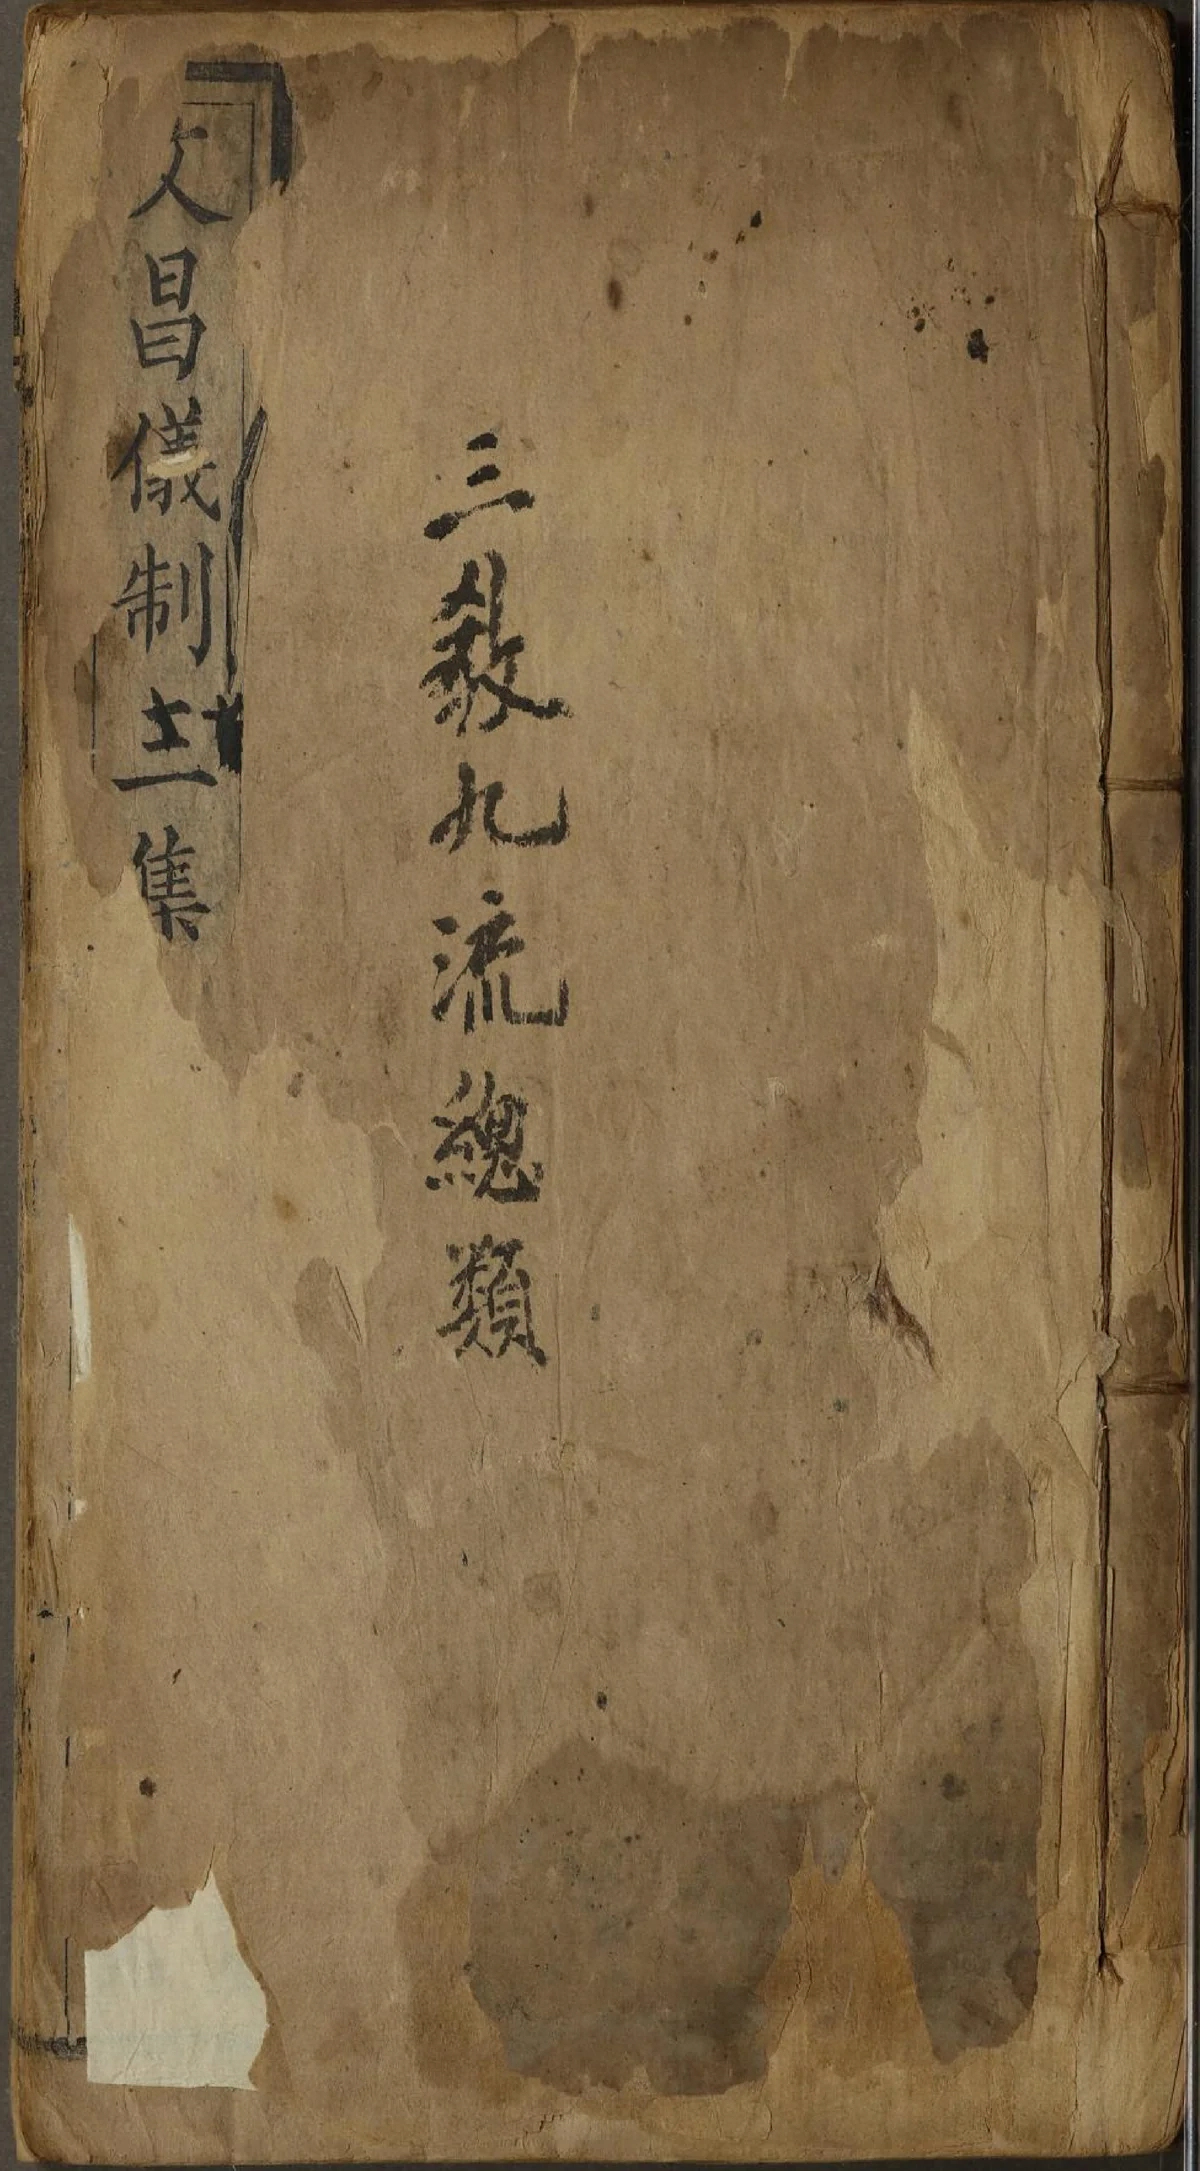 三教九流總類
文昌儀制十二集